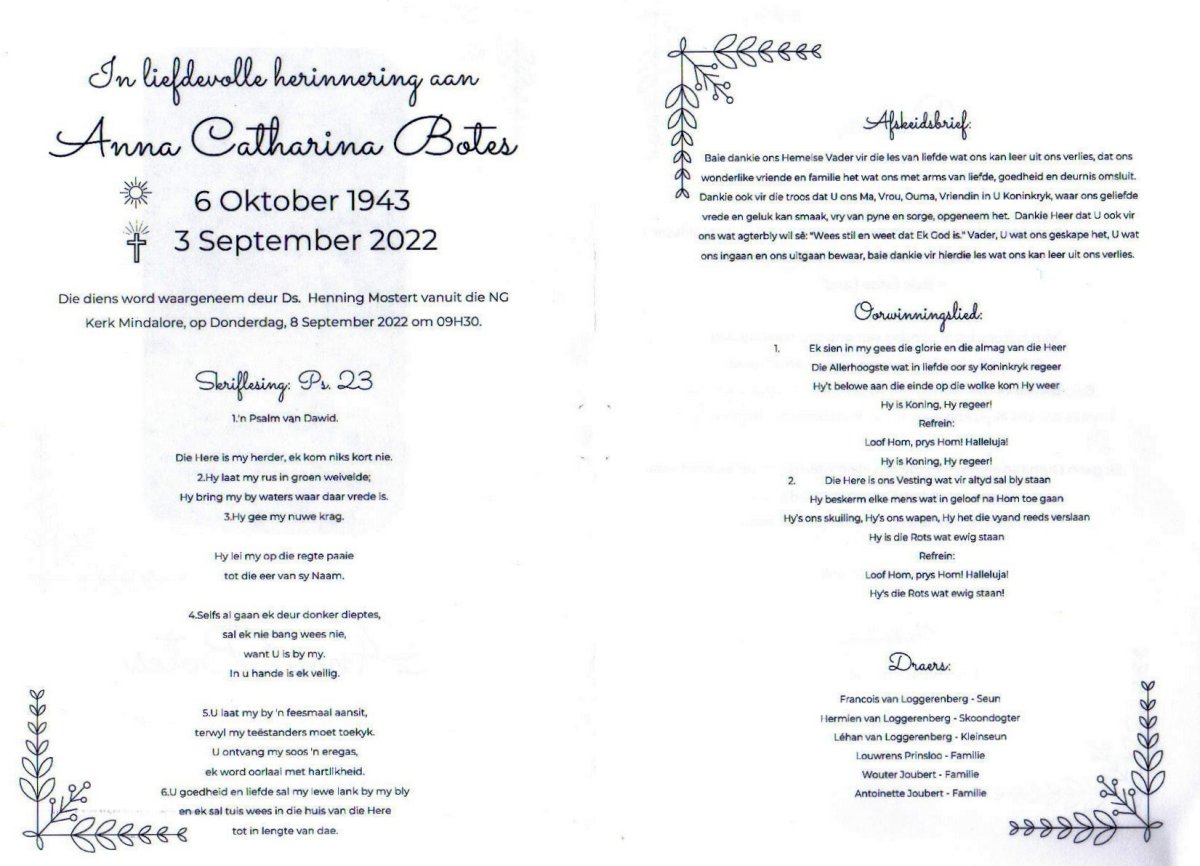 In liefdevolle herinnering aan
Anna Catharina Botes
6 Oktober 1943
3 September 2022
Die diens word waargeneem deur Ds. Henning Mostert vanuit die NG
Kerk Mindalore, op Donderdag, 8 September 2022 om 09H30.
Skriflesing: Ps. 23
1.'n Psalm van Dawid.
Die Here is my herder, ek kom niks kort nie.
2.Hy laat my rus in groen weivelde;
Hy bring my by waters waar daar vrede is.
3.Hy gee my nuwe krag.
Hy lei my op die regte paaie
tot die eer van sy Naam.
4.Selfs al gaan ek deur donker dieptes,
sal ek nie bang wees nie,
want U is by my.
In u hande is ek veilig.
5.U laat my by 'n feesmaal aansit,
terwyl my teëstanders moet toekyk.
U ontvang my soos 'n eregas,
ek word oorlaai met hartlikheid.
6.U goedheid en liefde sal my lewe lank by my bly
en ek sal tuis wees in die huis van die Here
tot in lengte van dae.
Afskeidsbrief:
Baie dankie ons Hemelse Vader vir die les van liefde wat ons kan leer uit ons verlies, dat ons
wonderlike vriende en familie het wat ons met arms van liefde, goedheid en deurnis omsluit.
Dankie ook vir die troos dat U ons Ma, Vrou, Ouma, Vriendin in U Koninkryk, waar ons geliefde
vrede en geluk kan smaak, vry van pyne en sorge, opgeneem het. Dankie Heer dat U ook vir
ons wat agterbly wil sê: "Wees stil en weet dat Ek God is." Vader, U wat ons geskape het, U wat
ons ingaan en ons uitgaan bewaar, baie dankie vir hierdie les wat ons kan leer uit ons verlies.
Oorwinningslied:
1. Ek sien in my gees die glorie en die almag van die Heer
Die Allerhoogste wat in liefde oor sy Koninkryk regeer
Hy't belowe aan die einde op die wolke kom Hy weer
Hy is Koning, Hy regeer!
Refrein:
Loof Hom, prys Hom! Halleluja!
Hy is Koning, Hy regeer!
2. Die Here is ons Vesting wat vir altyd sal bly staan
Hy beskerm elke mens wat in geloof na Hom toe gaan
Hy's ons skuiling, Hy's ons wapen, Hy het die vyand reeds verslaan
Hy is die Rots wat ewig staan
Refrein:
Loof Hom, prys Hom! Halleluja!
Hy's die Rots wat ewig staan!
Draers:
Francois van Loggerenberg - Seun
Hermien van Loggerenberg - Skoondogter
Léhan van Loggerenberg - Kleinseun
Louwrens Prinsloo - Familie
Wouter Joubert - Familie
Antoinette Joubert - Familie